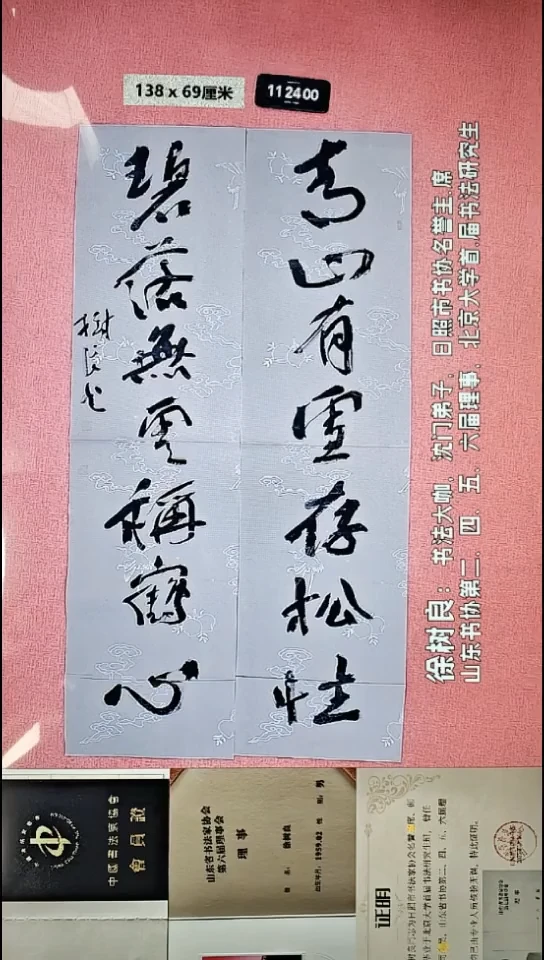 138 x 69厘米
112400
青山有雪存松性
碧落無雲稱鶴心
樹良書
徐树良：书法大咖，沈门弟子，日照市书协名誉主席
山东书协第二、四、五、六届理事，北京大学首届书法研究生
中國書法家協會
會員證
山东省书法家协会
第六届理事会
理 事
徐树良
男
1959.02
证明